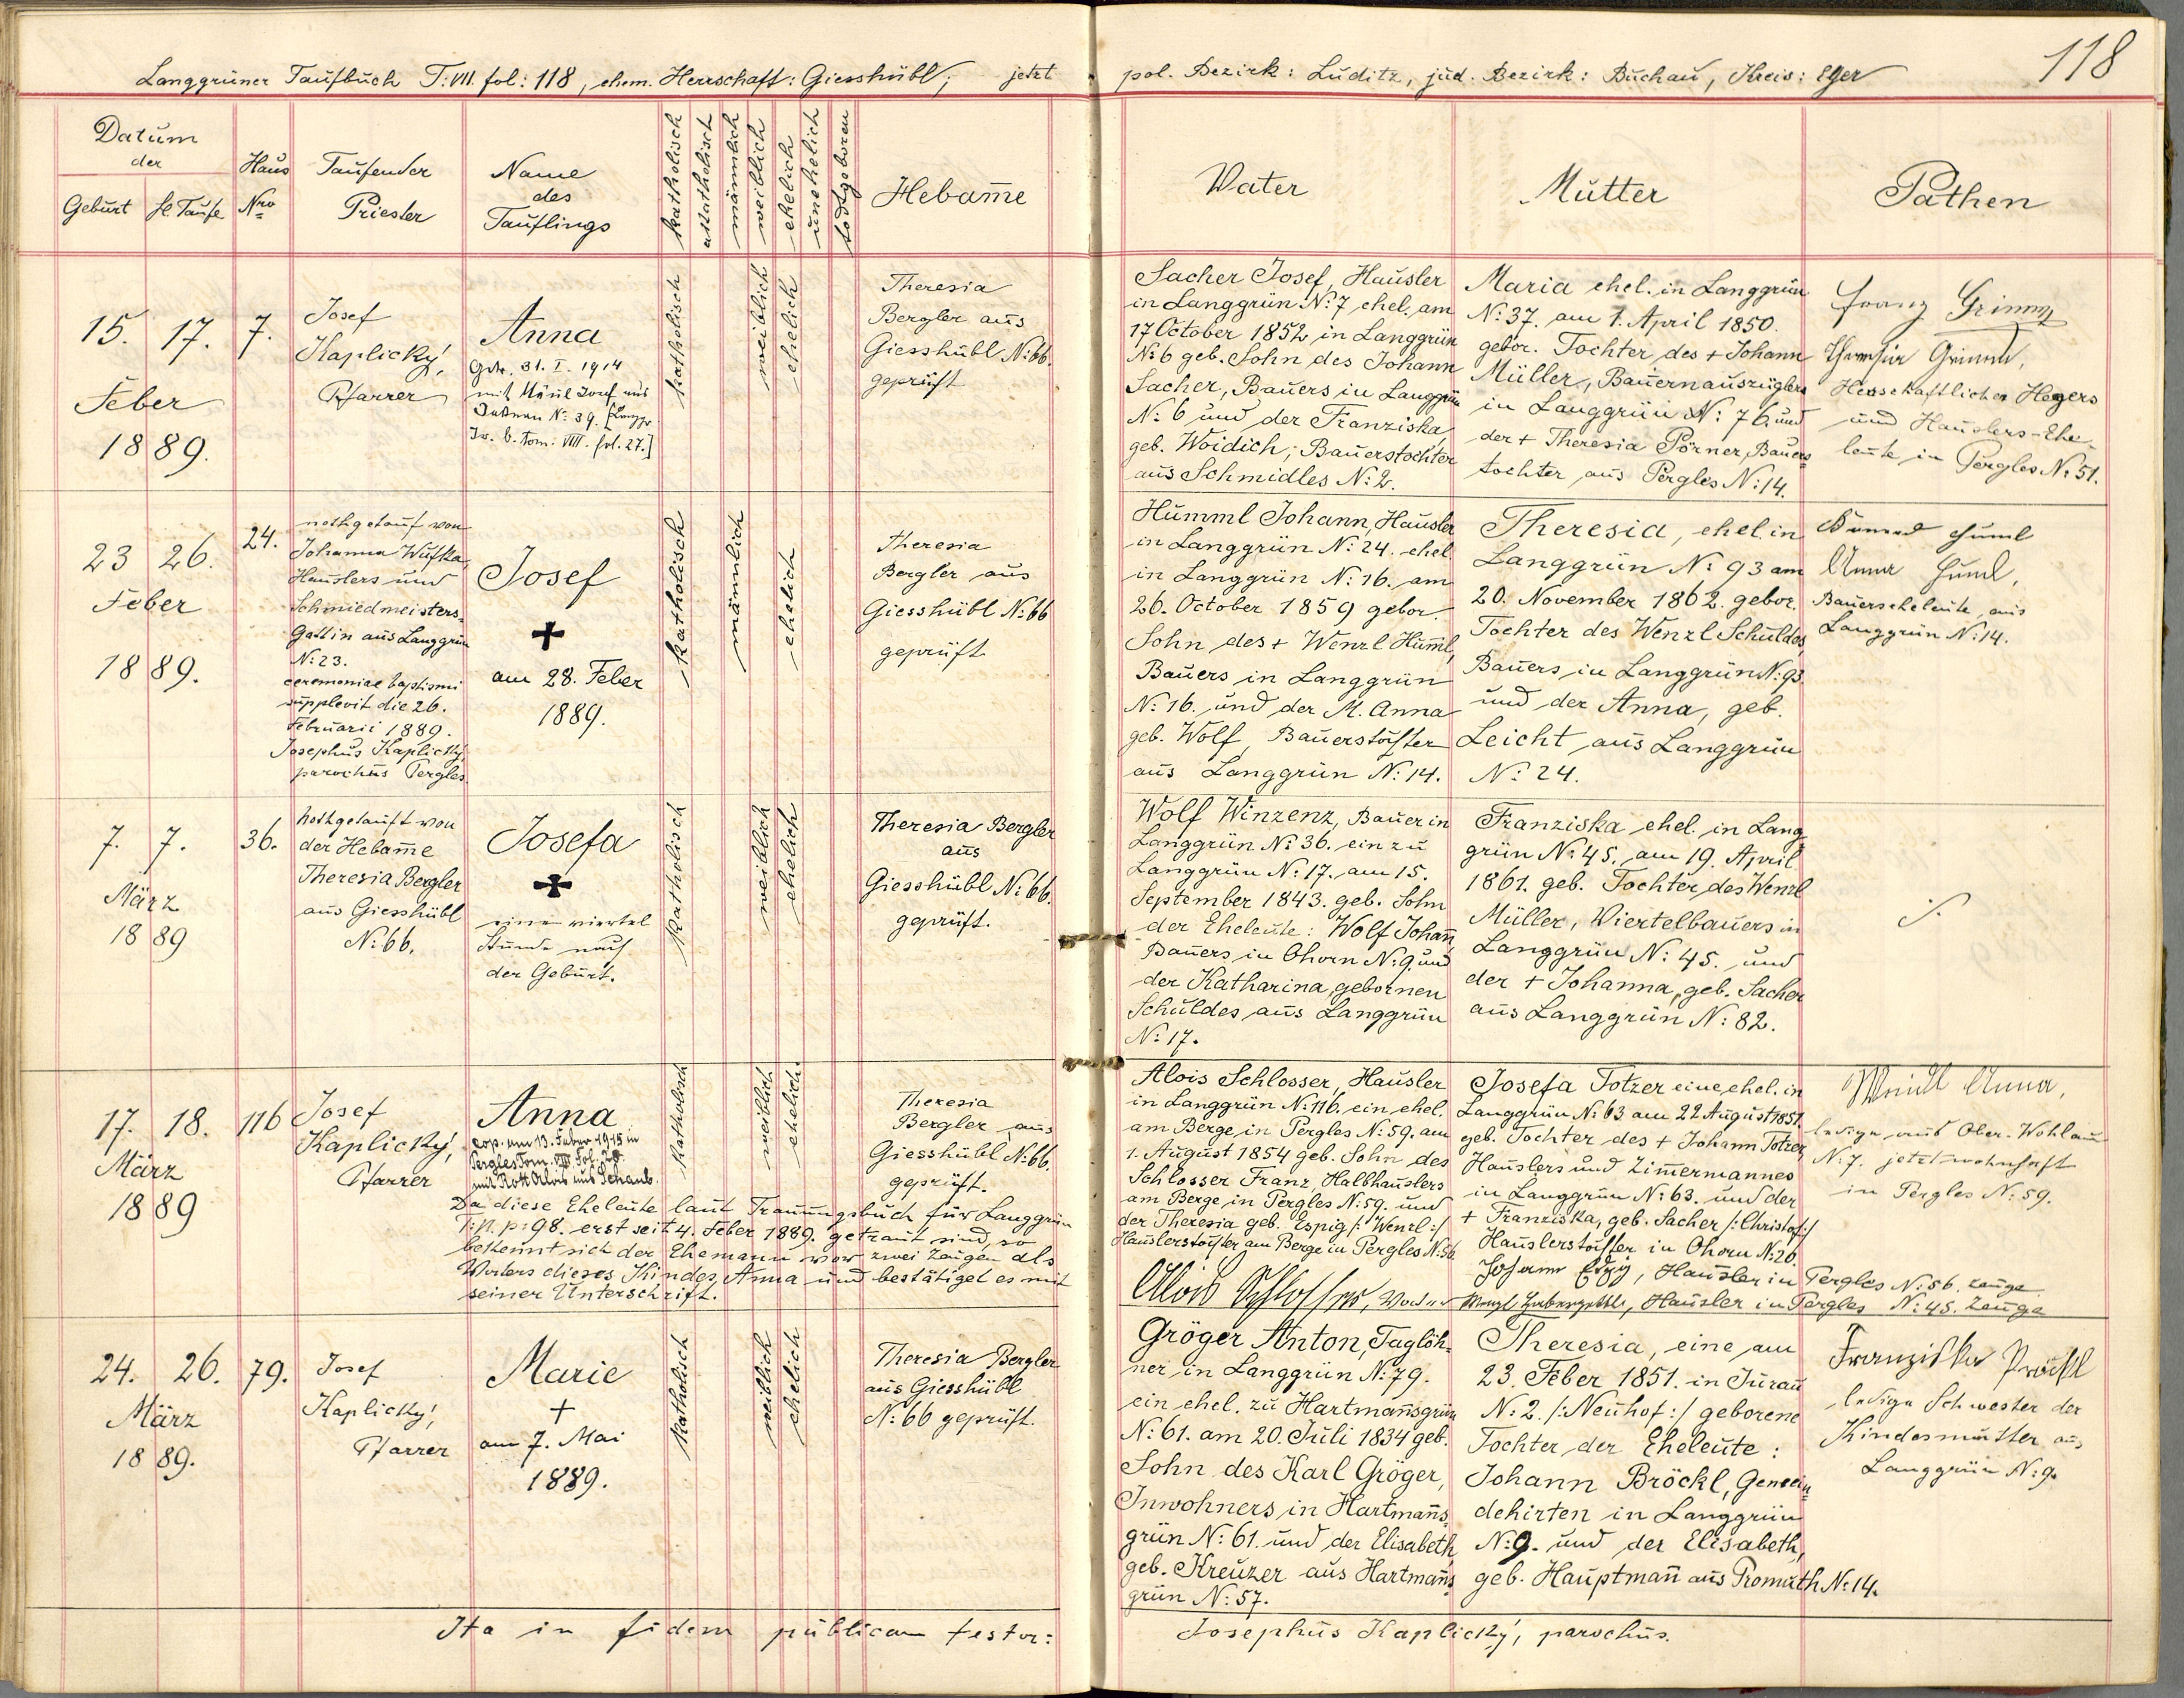 Langgrüner Taufbuch T: VII. fol: 118, ehem. Herrschaft: Giesshübl; jetzt pol. Bezirk: Luditz, jud. Bezirk: Buchau, Kreis: Eger
118
Datum
der
Geburt hl. Taufe
Haus
Nro
Taufender
Priester
Name
des
Täuflings
katholisch
akatholisch
männlich
weiblich
ehelich
unehelich
todtgeboren
Hebam̄e
Vater
Mutter
Pathen
15. 17. 7.
Feber
1889.
Josef
Kaplický,
Pfarrer
Anna
Gdr. 31. I. 1914
mit Josef aus
N: 39. [Langgr.
Tr. b. tom: VIII. fol. 27.]
katholisch
weiblich
ehelich
Theresia
Bergler aus
Giesshübl N: 66.
geprüft
Sacher Josef, Hausler
in Langgrün N: 7 ehel. am
17 October 1852 in Langgrün
N: 6 geb. Sohn des Johann
Sacher, Bauers in Langgrün
N: 6 und der Franziska,
geb. Woidich, Bauerstochter
aus Schmidles N: 2.
Maria ehel. in Langgrün
N: 37. am 1. April 1850.
gebor. Tochter des + Johann
Müller, Bauernauszüglers
in Langgrün N: 76. und
der + Theresia Pörner, Bauers-
tochter aus Pergles N: 14.
Franz Grimm
Theresia Grimm,
Herrschaftlicher Hegers
und Hauslers-Ehe-
leute in Pergles N: 51.
23 26.
Feber
1889.
24.
nothgetauf von
Johanna Wufka,
Hauslers und
Schmiedmeisters-
Gattin aus Langgrün
N: 23.
ceremoniae baptismi
supplevit die 26.
Februarii 1889.
Josephus Kaplický,
parochus Pergles.
Josef
+
am 28. Feber
1889.
katholisch
männlich
ehelich
Theresia
Bergler aus
Giesshübl N: 66
geprüft
Humml Johann, Hausler
in Langgrün N: 24. ehel.
in Langgrün N: 16. am
26. October 1859 gebor.
Sohn des + Wenzl Hum̄l,
Bauers in Langgrün
N: 16. und der M. Anna
geb. Wolf, Bauerstochter
aus Langgrün N: 14.
Theresia, ehel. in
Langgrün N: 93 am
20. November 1862. gebor.
Tochter des Wenzl Schuldes,
Bauers in Langgrün N: 93
und der Anna, geb.
Leicht aus Langgrün
N: 24.
Huml
Anna Huml,
Bauerseheleute aus
Langgrün N: 14.
7. 7.
März
1889
36.
Nothgetauft von
der Hebam̄e
Theresia Bergler
aus Giesshübl
N: 66.
Josefa
+
einen viertel
Stunde nach
der Geburt.
katholisch
weiblich
ehelich
Theresia Bergler
aus
Giesshübl N: 66.
geprüft.
Wolf Winzenz, Bauer in
Langgrün N: 36. ein zu
Langgrün N: 17. am 15.
September 1843. geb. Sohn
der Eheleute: Wolf Johan̄,
Bauers in Ohorn N: 9. und
der Katharina, gebornen
Schuldes aus Langgrün
N: 17.
Franziska ehel. in Lang-
grün N: 45. am 19. April
1861. geb. Tochter des Wenzl
Müller, Viertelbauers in
Langgrün N: 45. und
der + Johanna, geb. Sacher
aus Langgrün N: 82.
./.
17. 18. 116
März
1889
Josef
Kaplický,
Pfarrer
Anna
cop. am 13. Feber 1915 in
Pergles Tom. VIII Fol. 28.
mit Rott Alois aus Schaub.
Da diese Eheleute laut Trauungsbuch für Langgrün
p: 98. erst seit 4. Feber 1889. getraut sind, so
bekennt sich der Ehemann vor zwei Zeugen als
Vaters dieses Kindes, Anna und bestätiget es mit
seiner Unterschrift.
katholisch
weiblich
ehelich
Theresia
Bergler aus
Giesshübl N: 66.
geprüft.
Alois Schlosser, Hausler
in Langgrün N: 116. ein ehel.
am Berge in Pergles N: 59. am
1. August 1854 geb. Sohn des
Schlosser Franz, Halbhauslers
am Berge in Pergles N: 59. und
der Theresia geb. Espig /: Wenzl :/
Hauslerstochter am Berge in Pergles N: 56.
Alois Schlosser, Vater
Josefa Totzer eine ehel. in
Langgrün N: 63 am 22 August 1857.
geb. Tochter des + Johann Totzer,
Hauslers und Zim̄ermannes
in Langgrün N: 63. und der
+ Franziska, geb. Sacher /: Christof :/
Hauslerstochter in Ohorn N: 20.
Johann Espig, Hausler in Pergles N: 56. Zeuge
Wenzl, Hausler in Pergles N: 45. Zeuge
Weidl Anna,
ledige aus Ober-Wohlau
N: 7. jetzt wohnhaft
in Pergles N: 59.
24. 26. 79.
März
1889.
Josef
Kaplický,
Pfarrer
Marie
+
am 7. Mai
1889.
katholisch
weiblich
ehelich
Theresia Bergler
aus Giesshübl
N: 66 geprüft.
Gröger Anton, Taglöh-
ner in Langgrün N: 79.
ein ehel. zu Hartman̄sgrün
N: 61. am 20. Juli 1834 geb.
Sohn des Karl Gröger,
Inwohners in Hartman̄s-
grün N: 61. und der Elisabeth,
geb. Kreuzer aus Hartman̄s-
grün N: 57.
Theresia, eine am
23. Feber 1851. in Jurau
N: 2. /: Neuhof :/ geborene
Tochter der Eheleute:
Johann Bröckl, Gemein-
dehirten in Langgrün
N: 9. und der Elisabeth,
geb. Hauptman̄ aus Promuth N: 14.
Franziska Pröckl
ledige Schwester der
Kindesmutter aus
Langgrün N: 9.
Ita in fidem publicam testor:
Josephus Kaplický, parochus.